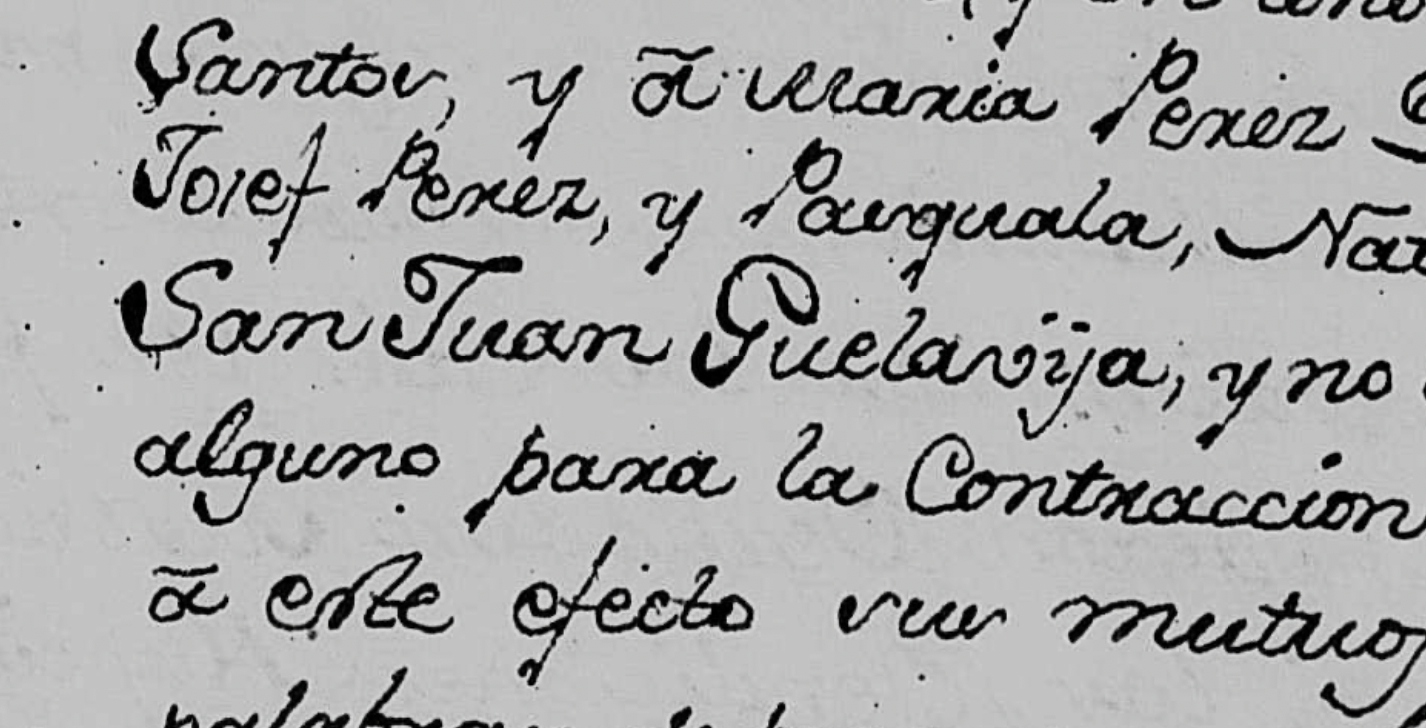 Santos, y ã Maria Perez
Josef Perez, y Pasquala,
San Juan Guelavija, y no
alguno para la Contraccion
ã este efecto sus mutuos